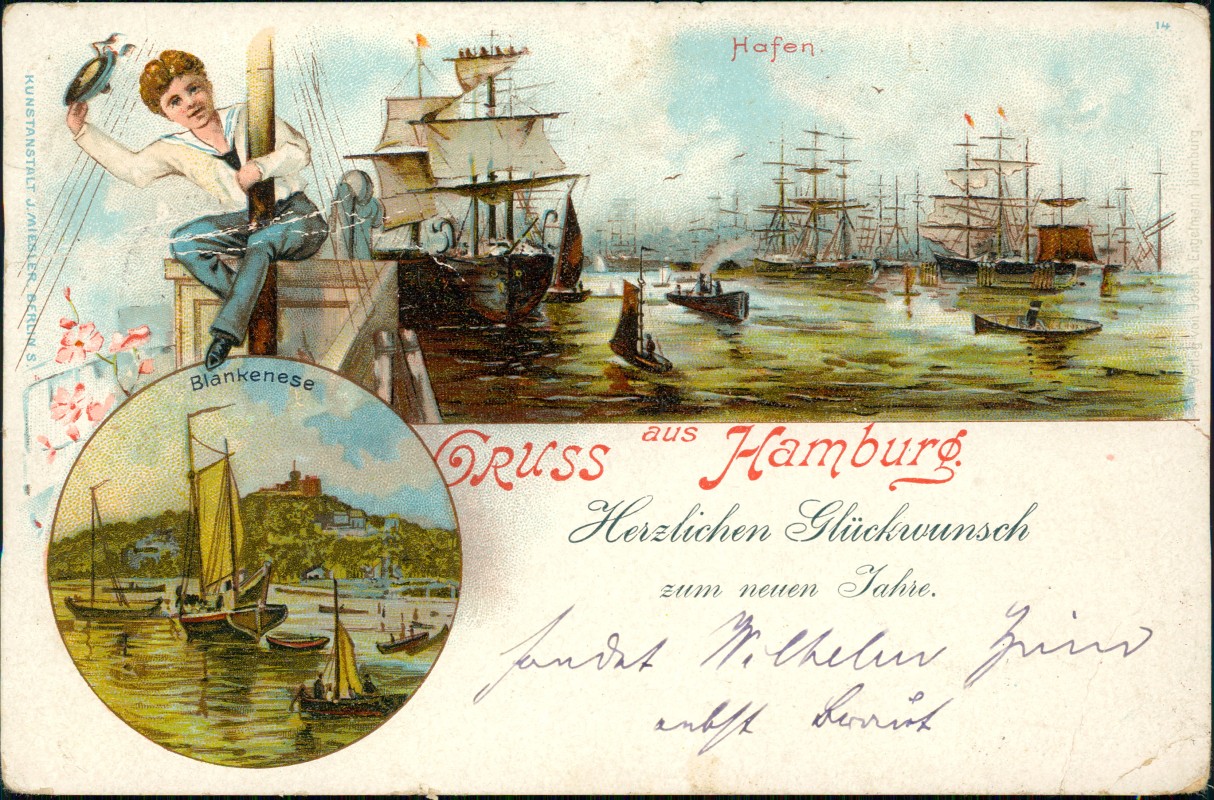 14
Hafen.
KUNSTANSTALT J. MIESLER, BERLIN S.
Verlag von Johann Engelmann, Hamburg
Blankenese
GRUSS aus Hamburg.
Herzlichen Glückwunsch
zum neuen Jahre.
sendet Wilhelm
nebst Braut